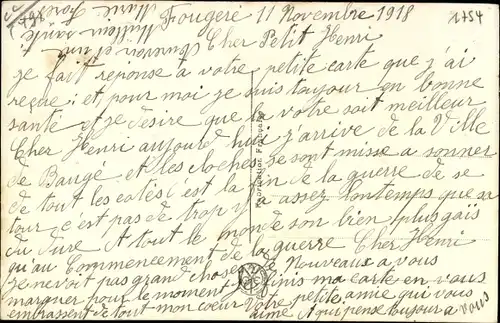 Fougeré 11 Novembre 1918
Cher Petit Henri
je fait reponse a votre petite carte que j'ai
reçue; et pour moi je suis toujour en bonne
santé et je désire que la votre soit meilleur
Cher Henri aujourd hui j'arrive de la Ville
de Baugé et les cloches se sont misse a sonner
de tout les cotés c'est la fin de la guerre de se
jour c'est pas de trop il y a assez lontemps que sa
du dure A tout le monde son bien plus gais
qu'au Commencement de la guerre Cher Henri
je nevoit pas grand chose de Nouveaux a vous
marquer pour le moment je finis ma carte en vous
embrassent de tout mon cœur Votre petite amie qui vous
aime A qui pense toujour a vous
Au revoir et une
Meilleur santé
Marie
1754
Fabrication Française